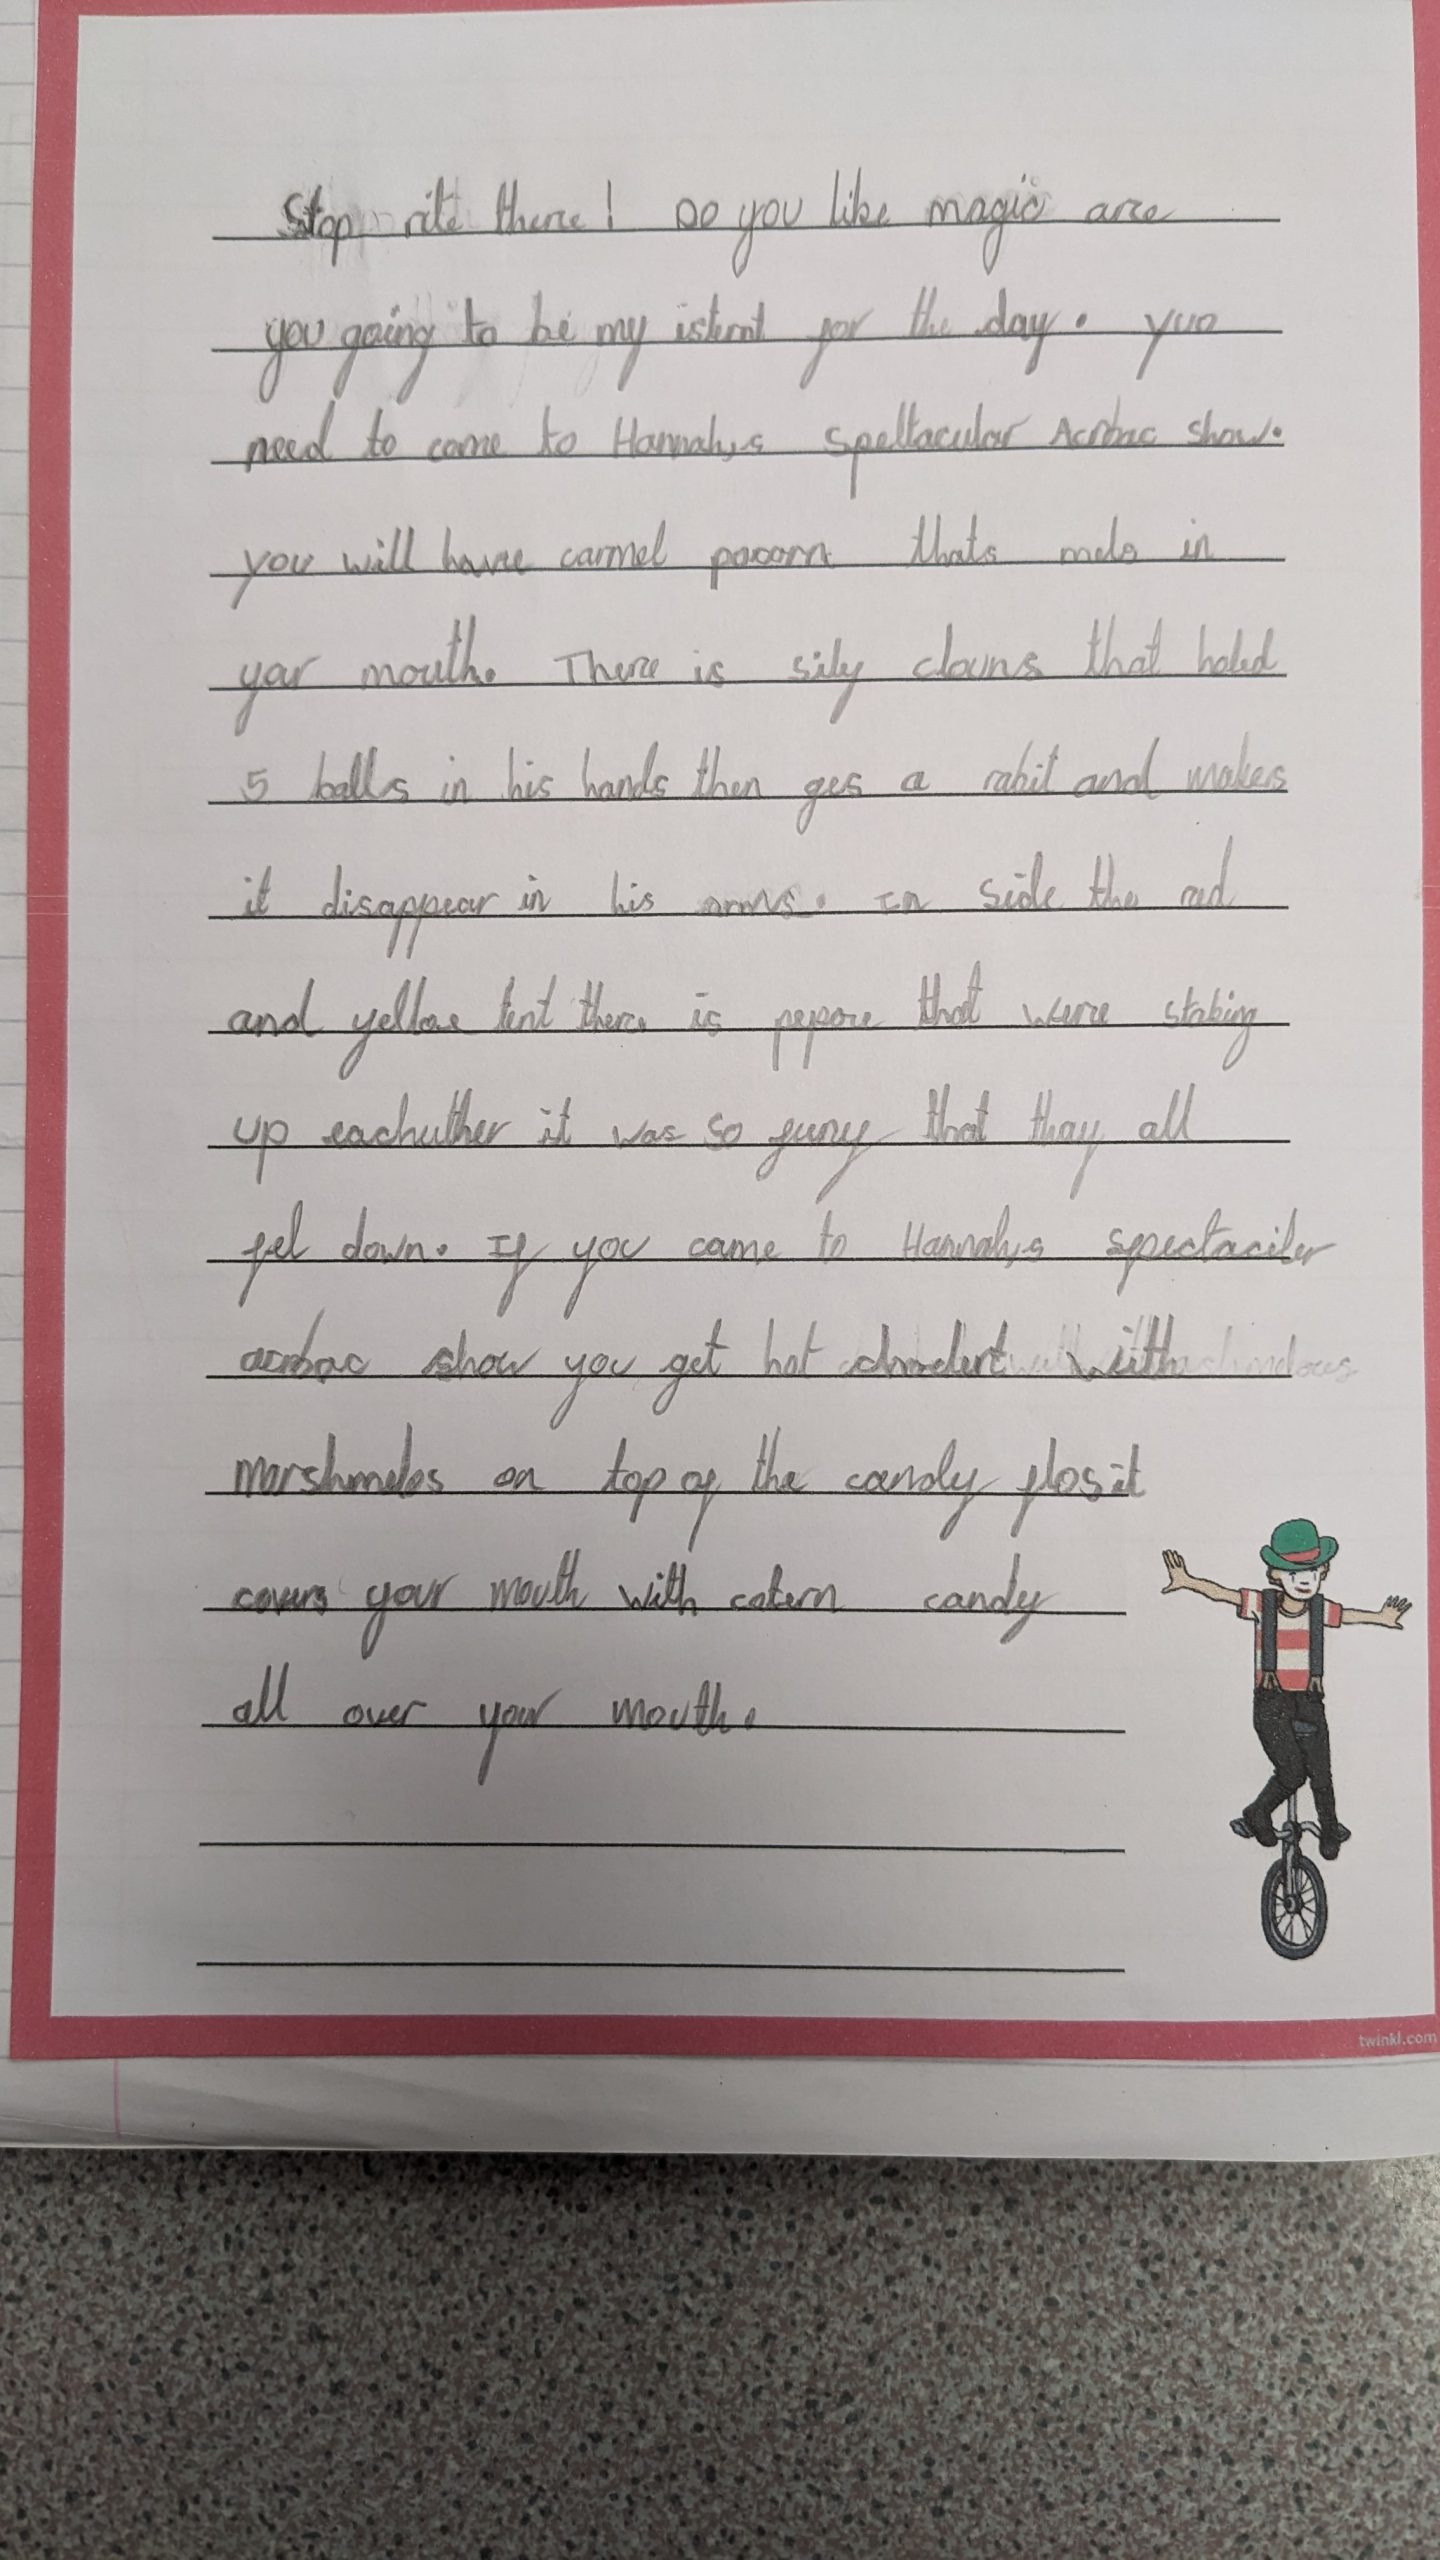 Stop rite there! Do you like magic are
you going to be my istent for the day. yuo
need to come to Hannah,s spectacular Acrbac show.
you will have carmel pocorn thats mels in
yar mouth. There is sily clowns that holed
5 balls in his hands then ges a rabit and makes
it disappear in his arms. In side the red
and yellow tent there is pepore that were stabing
up eachuther it was so funy that thay all
fel down. If you came to Hannah,s spectaciler
acrbac show you get hot with
marshmelos on top of the candy flos it
covers your mouth with cotern candy
all over your mouth.
twinkl.com